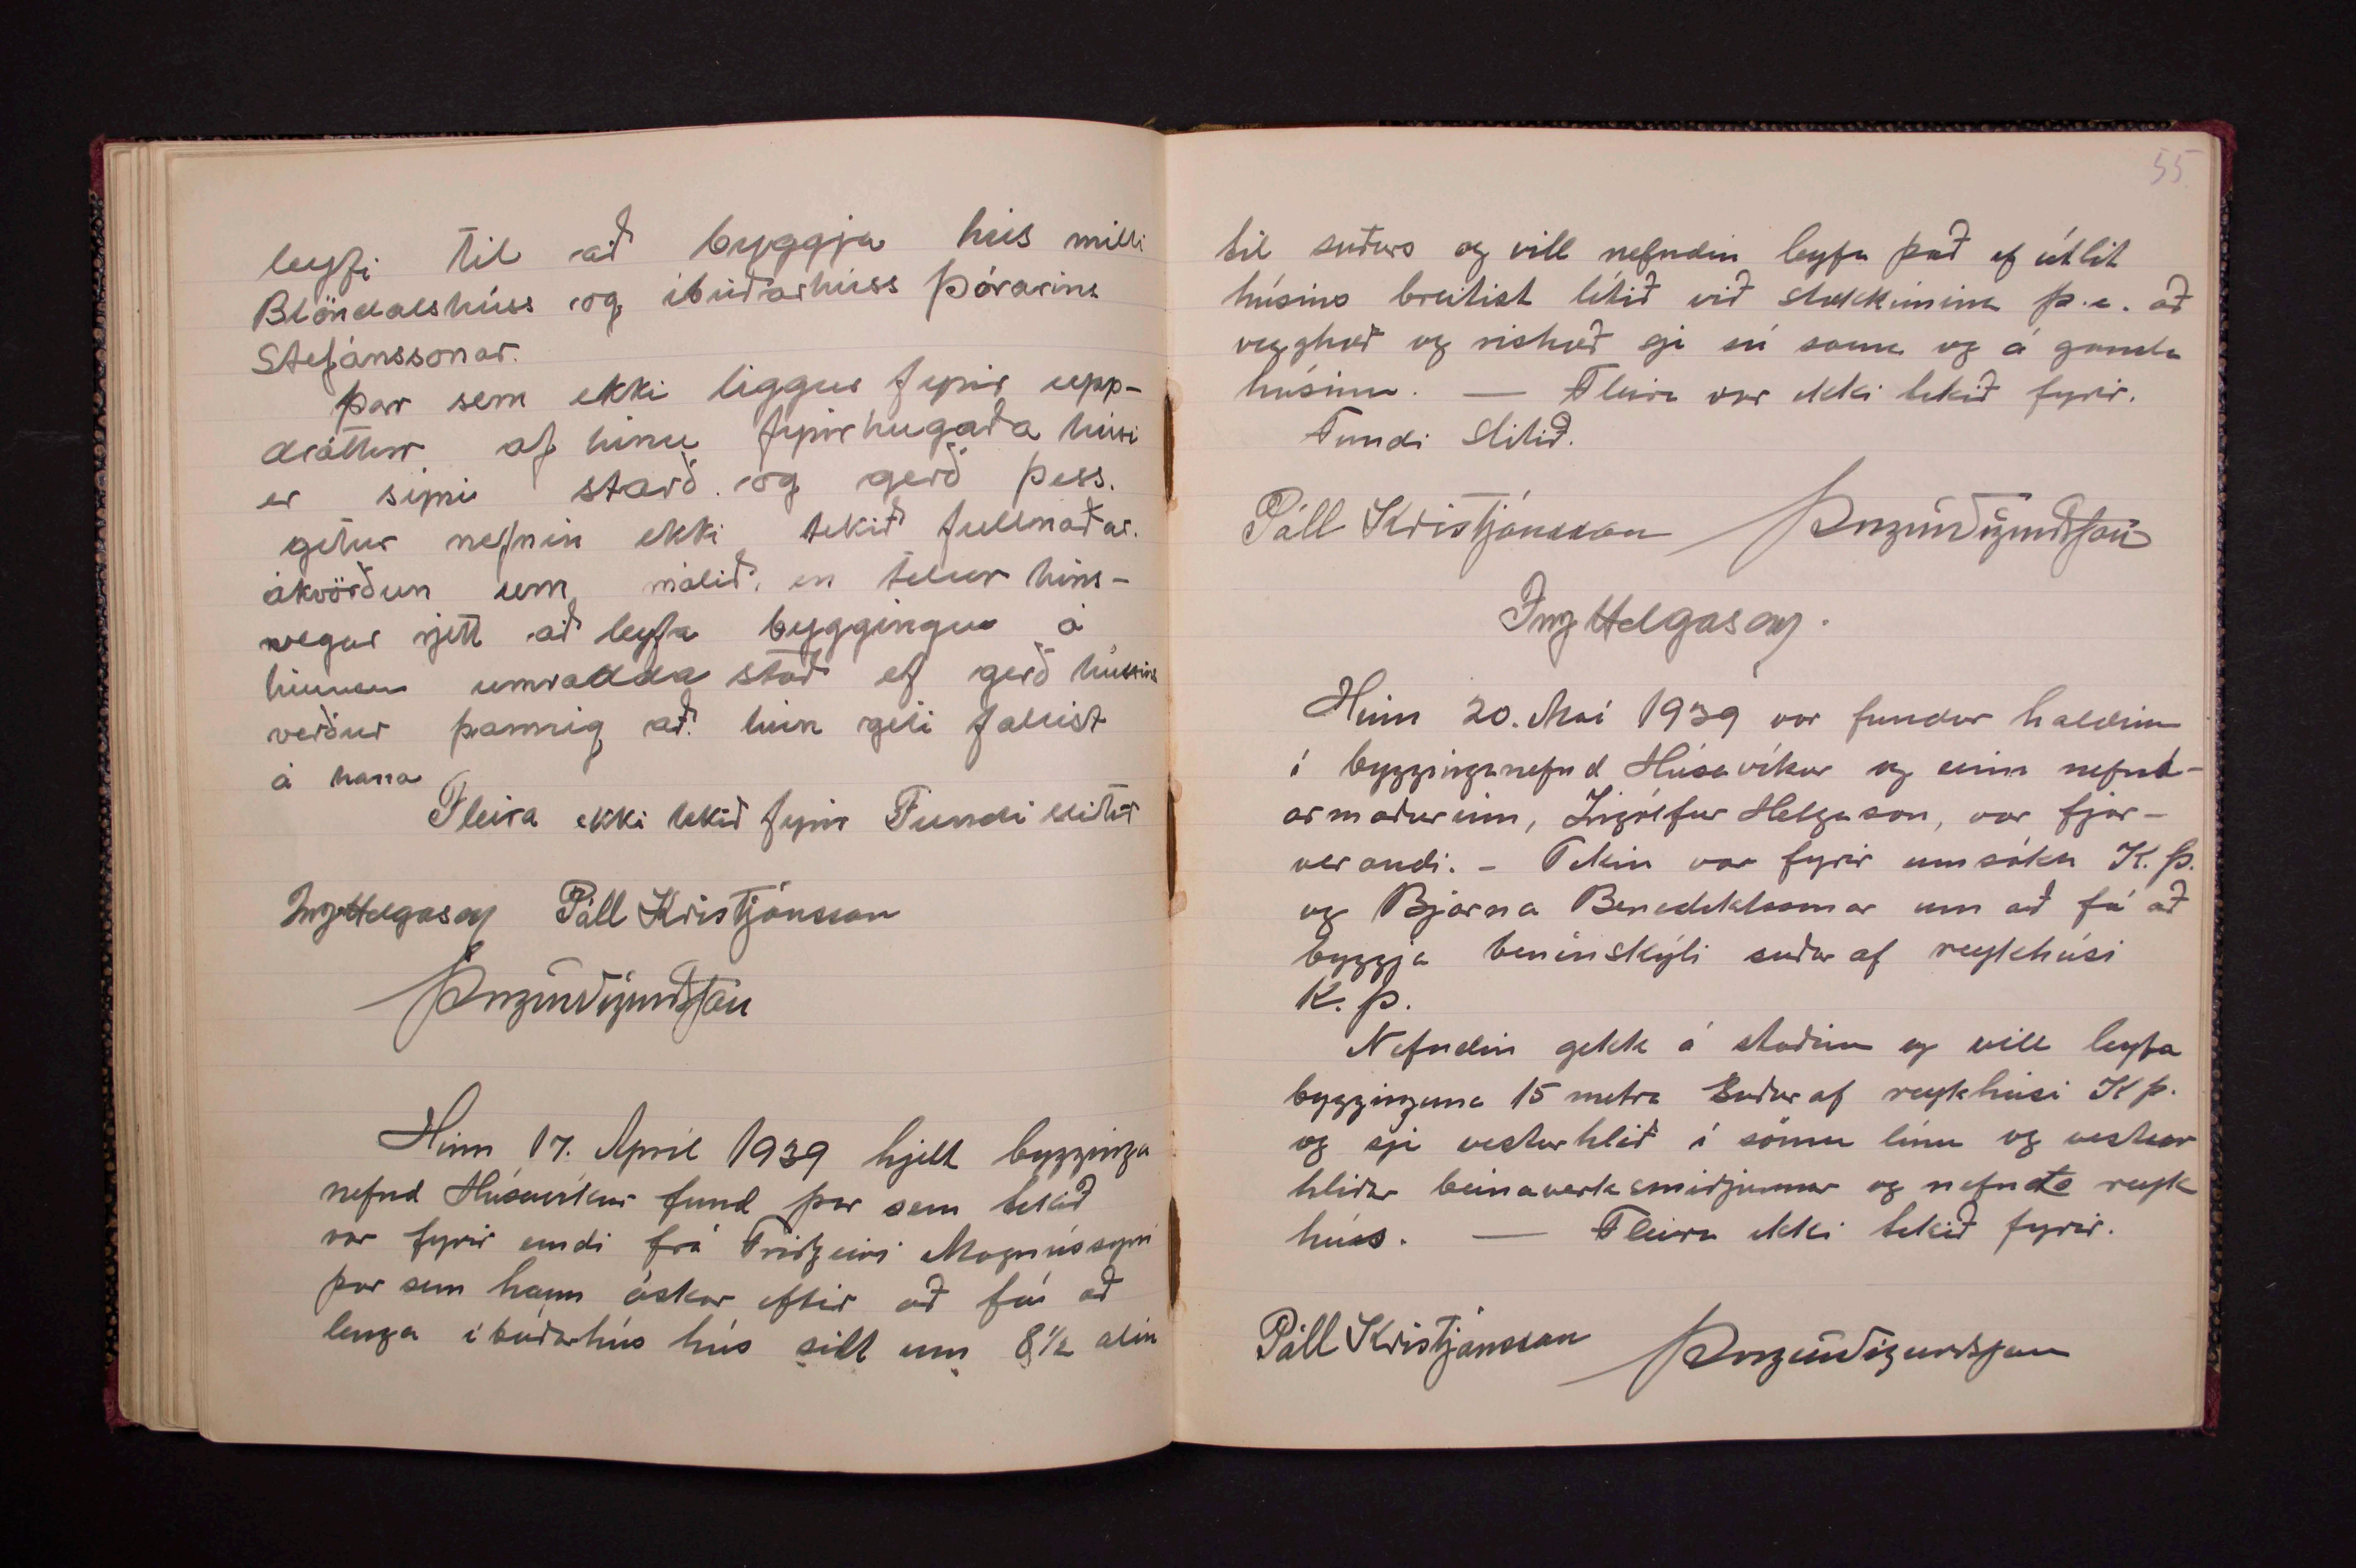 leyfi til að byggja hús milli
Blöndalshúss og íbúðarhúss Þórarins
Stefánssonar.
Þar sem ekki liggur fyrir upp-
dráttur af hinu fyrirhugaða húsi
er sýni stærð og gerð þess.
getur nefnin ekki tekið fullnaðar.
ákvörðun um málið. en telur hins-
vegar rjett að leyfa byggingu á
hinum umrædda stað ef gerð hússins
verður þannig að hún geti fallist
á hana
Fleira ekki tekið fyrir Fundi slitið
Ing Helgason Páll Kristjánsson
Hinn 17. Apríl 1939 hjelt bygginga
nefnd Húsavíkur fund þar sem tekið
var fyrir erindi frá Friðgeiri Magnússyni
þar sem hann óskar eftir að fá að
lengja íbúðarhús hús sitt um 8 1/2 alin
55
til suðurs og vill nefndin leyfa það ef útlit
húsins breitist lítið við stækkunina þ.e. að
vegghæð og rishæð sje sú sama og á gamla
húsinu. — Fleira var ekki tekið fyrir.
Fundi slitið.
Páll Kristjánsson
Ing Helgason.
Hinn 20. Maí 1939 var fundur haldinn
í bygginganefnd Húsavíkur og einn nefnd-
armaðurinn, Ingólfur Helgason, var fjar-
verandi. - Tekin var fyrir umsókn K.Þ.
og Bjarna Benediktssonar um að fá að
byggja benínskýli suður af reykhúsi
K.Þ.
Nefndin gekk á staðinn og vill leyfa
bygginguna 15 metra suður af reykhúsi K Þ.
og sje vesturhlið í sömu línu og vestur
hliðar beinaverksmiðjunnar og nefnds reyk
húss. — Fleira ekki tekið fyrir.
Páll Kristjánsson